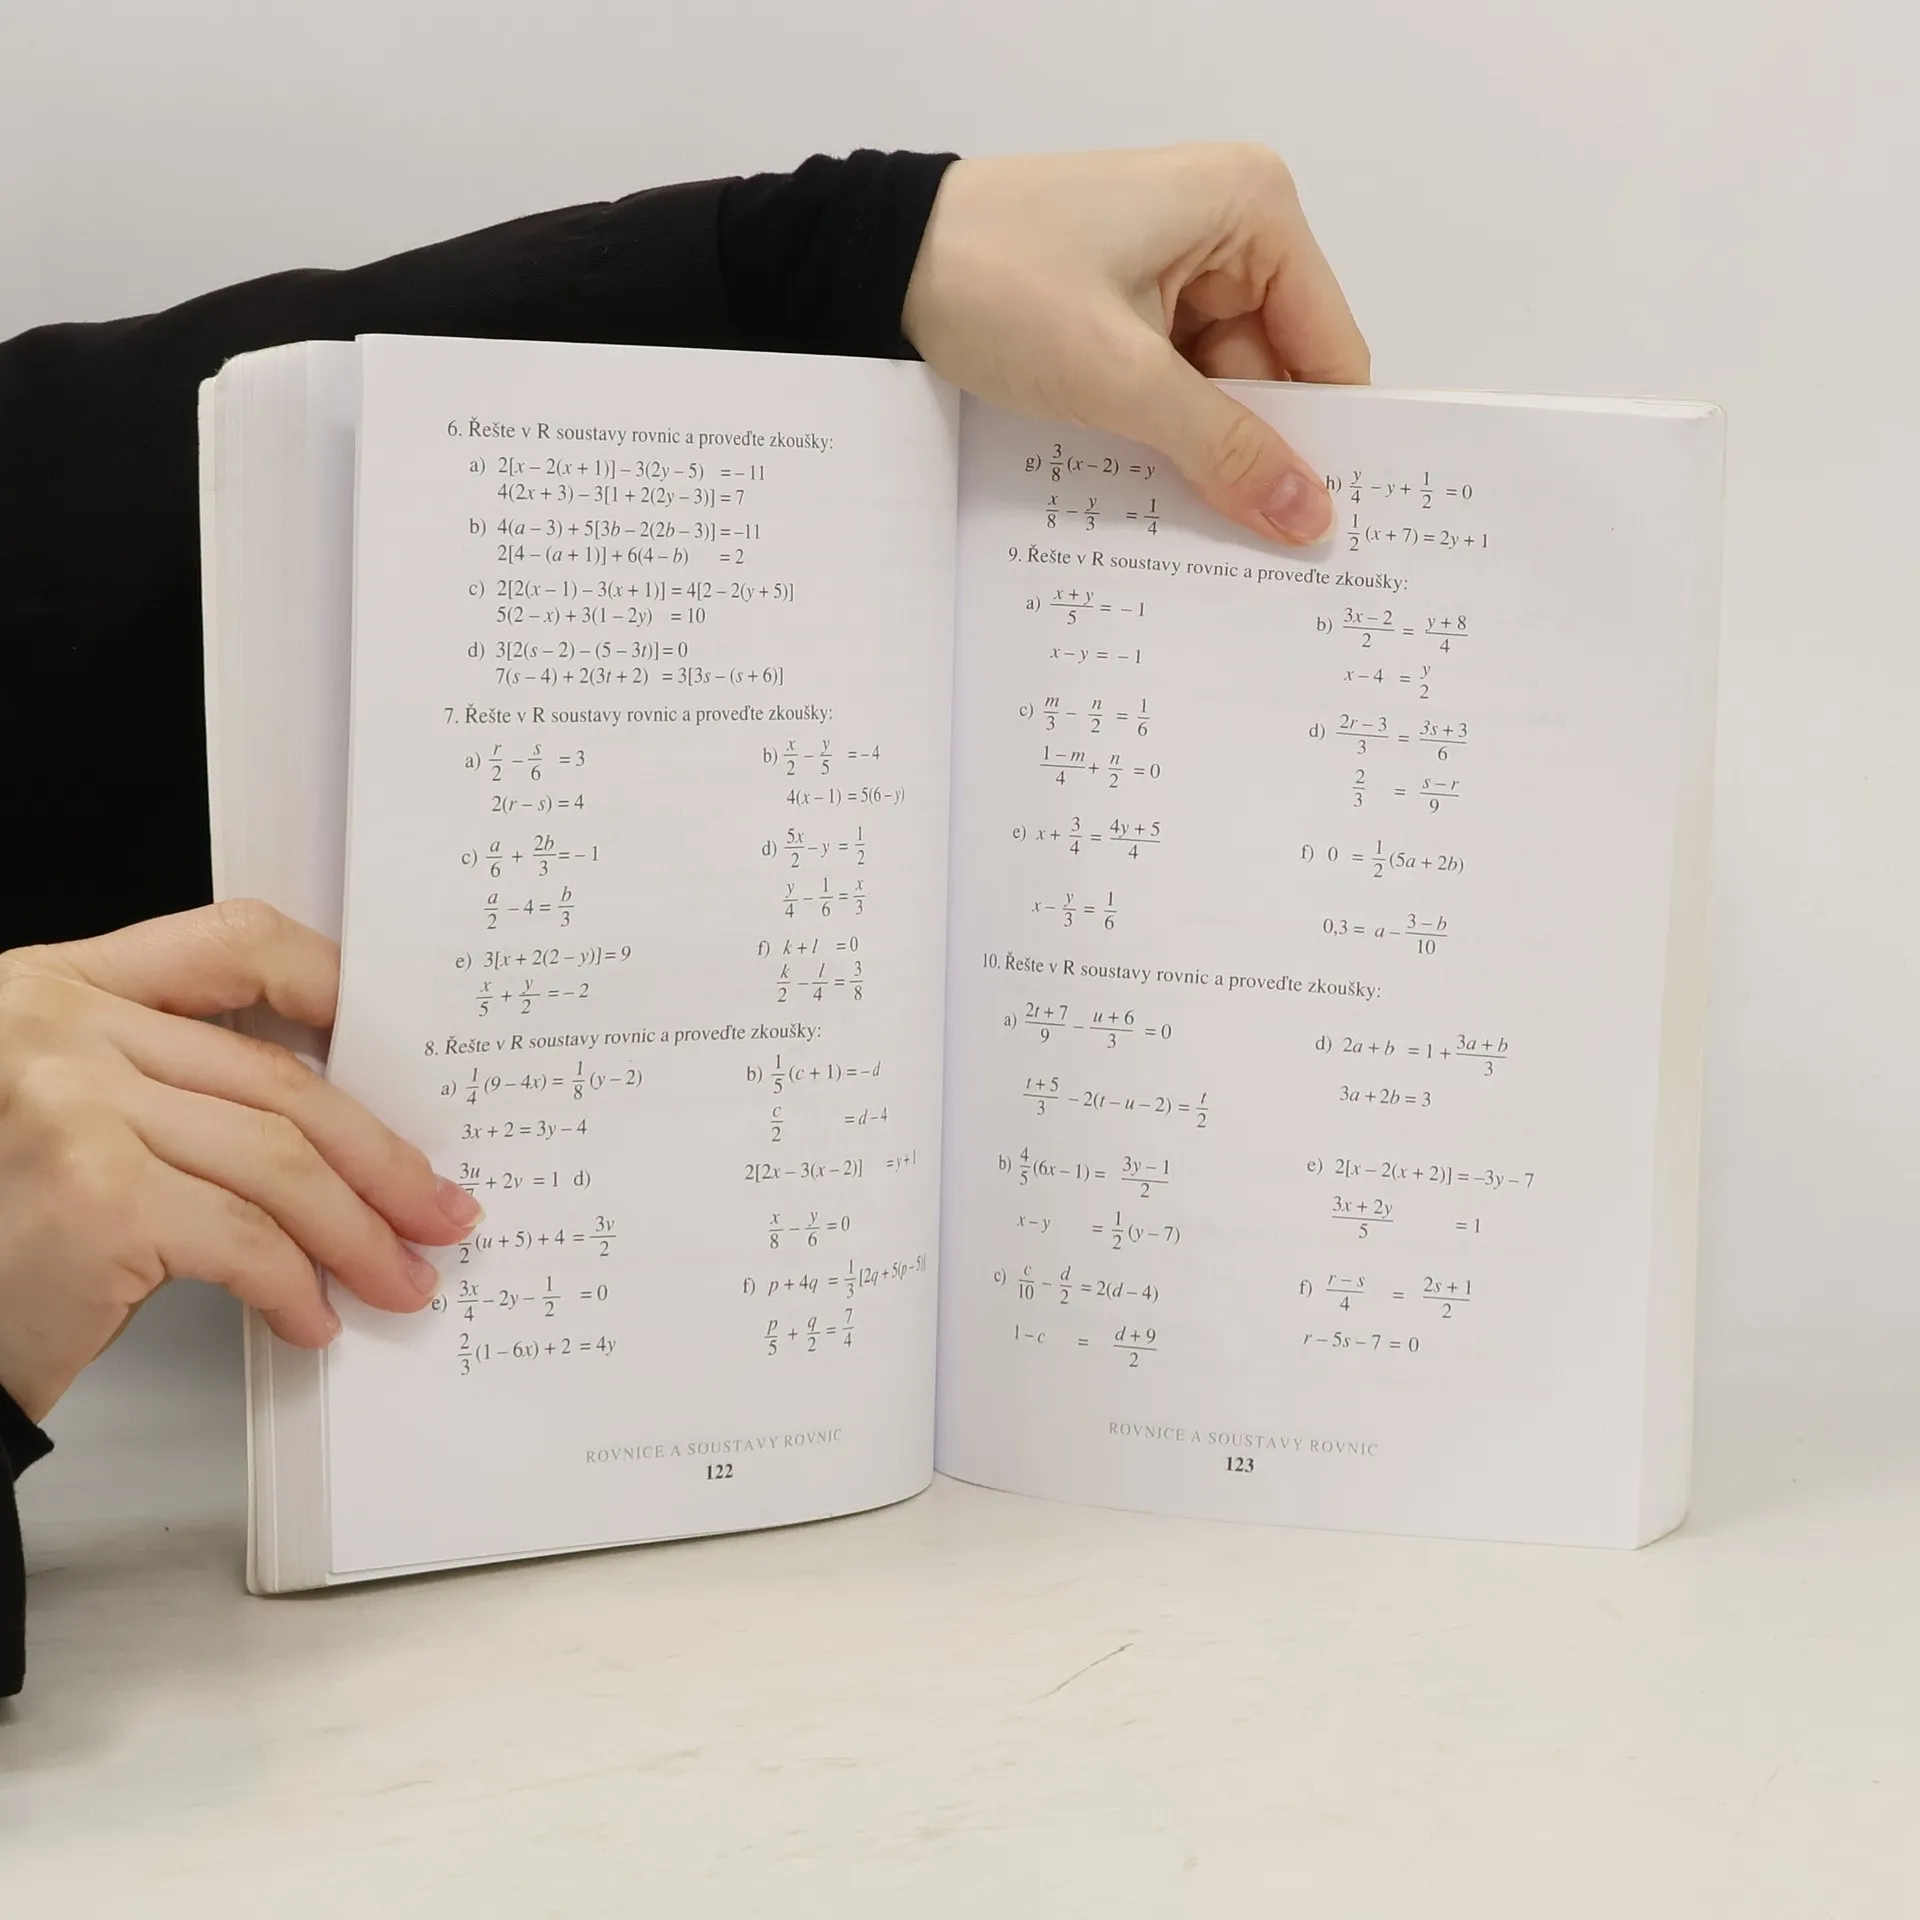 6. Řešte v R soustavy rovnic a proveďte zkoušky:
a) 2[x – 2(x + 1)] – 3(2y – 5) = – 11
4(2x + 3) – 3[1 + 2(2y – 3)] = 7
b) 4(a – 3) + 5[3b – 2(2b – 3)] = –11
2[4 – (a + 1)] + 6(4 – b) = 2
c) 2[2(x – 1) – 3(x + 1)] = 4[2 – 2(y + 5)]
5(2 – x) + 3(1 – 2y) = 10
d) 3[2(s – 2) – (5 – 3t)] = 0
7(s – 4) + 2(3t + 2) = 3[3s – (s + 6)]
7. Řešte v R soustavy rovnic a proveďte zkoušky:
a) r/2 – s/6 = 3
2(r – s) = 4
b) x/2 – y/5 = –4
4(x – 1) = 5(6 – y)
c) a/6 + 2b/3 = – 1
a/2 – 4 = b/3
d) 5x/2 – y = 1/2
y/4 – 1/6 = x/3
e) 3[x + 2(2 – y)] = 9
x/5 + y/2 = – 2
f) k + l = 0
k/2 – l/4 = 3/8
8. Řešte v R soustavy rovnic a proveďte zkoušky:
a) 1/4 (9 – 4x) = 1/8 (y – 2)
3x + 2 = 3y – 4
b) 1/5 (c + 1) = –d
c/2 = d – 4
3u/7 + 2v = 1
/2 (u + 5) + 4 = 3v/2
d) 2[2x – 3(x – 2)] = y + 1
x/8 – y/6 = 0
e) 3x/4 – 2y – 1/2 = 0
2/3 (1 – 6x) + 2 = 4y
f) p + 4q = 1/3 [2q + 5(p – 5)]
p/5 + q/2 = 7/4
ROVNICE A SOUSTAVY ROVNIC
122
g) 3/8 (x – 2) = y
x/8 – y/3 = 1/4
h) y/4 – y + 1/2 = 0
1/2 (x + 7) = 2y + 1
9. Řešte v R soustavy rovnic a proveďte zkoušky:
a) x + y/5 = – 1
x – y = – 1
b) 3x – 2/2 = y + 8/4
x – 4 = y/2
c) m/3 – n/2 = 1/6
1 – m/4 + n/2 = 0
d) 2r – 3/3 = 3s + 3/6
2/3 = s – r/9
e) x + 3/4 = 4y + 5/4
x – y/3 = 1/6
f) 0 = 1/2 (5a + 2b)
0,3 = a – 3 – b/10
10. Řešte v R soustavy rovnic a proveďte zkoušky:
a) 2t + 7/9 – u + 6/3 = 0
t + 5/3 – 2(t – u – 2) = t/2
d) 2a + b = 1 + 3a + b/3
3a + 2b = 3
b) 4/5 (6x – 1) = 3y – 1/2
x – y = 1/2 (y – 7)
e) 2[x – 2(x + 2)] = –3y – 7
3x + 2y/5 = 1
c) c/10 – d/2 = 2(d – 4)
1 – c = d + 9/2
f) r – s/4 = 2s + 1/2
r – 5s – 7 = 0
ROVNICE A SOUSTAVY ROVNIC
123